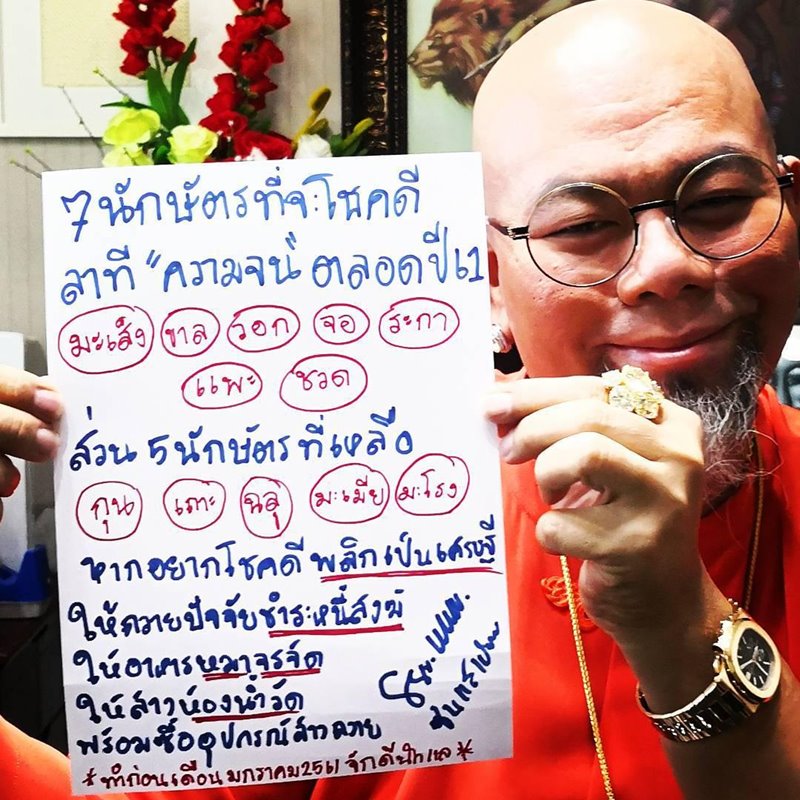 7 นักษัตรที่จะโชคดี
ลาที "ความจน" ตลอดปี 61
มะเส็ง ขาล วอก จอ ระกา
แพะ ชวด
ส่วน 5 นักษัตรที่เหลือ
กุน เถาะ ฉลู มะเมีย มะโรง
หากอยากโชคดี พลิกเป็นเศรษฐี
ให้ถวายปัจจัยชำระหนี้สงฆ์
ให้อาหารหมาจรจัด
ให้ล้างห้องน้ำวัด
พร้อมซื้ออุปกรณ์ล้างถวาย
*ทำก่อนเดือนมกราคม 2561 จักดีนักแล*